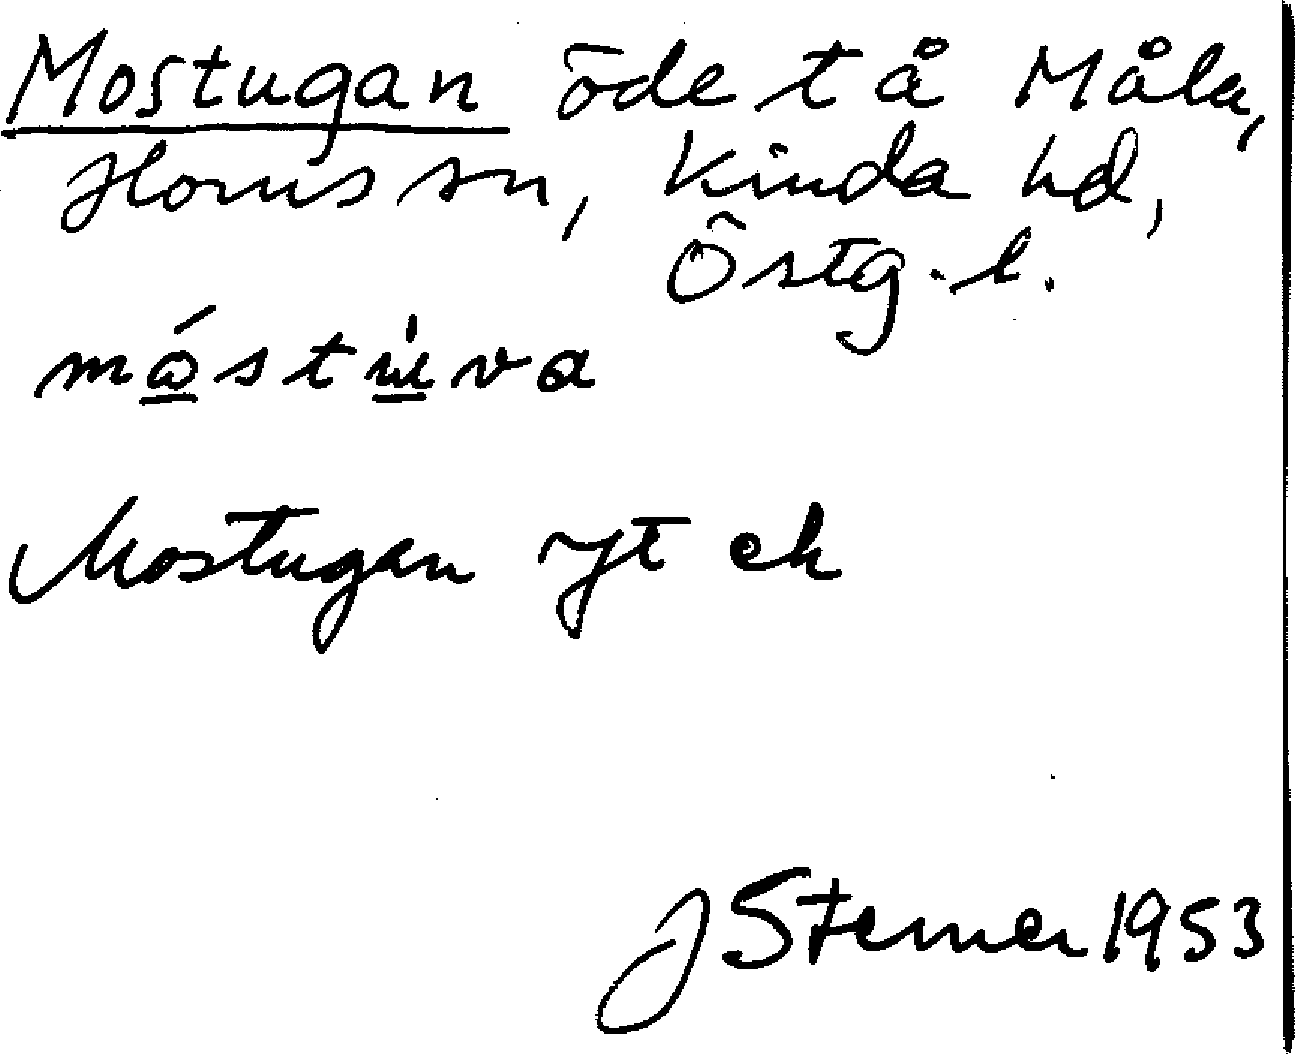 Mostugan öde t å Måla,
Horns sn, Kinda hd,
Östg. l.
mó̲stu̲̇va
Mostugan yt ek
J Sterner 1953